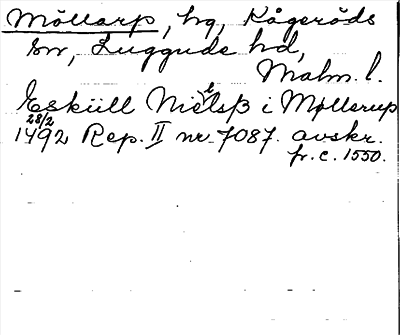 Möllarp, hg, Kågeröds
sn, Luggude hd,
Malm. l.
Eskiill Nielsß i Møllerup
28/2
1492 Rep. II nr 7087. avskr.
fr. c. 1550.